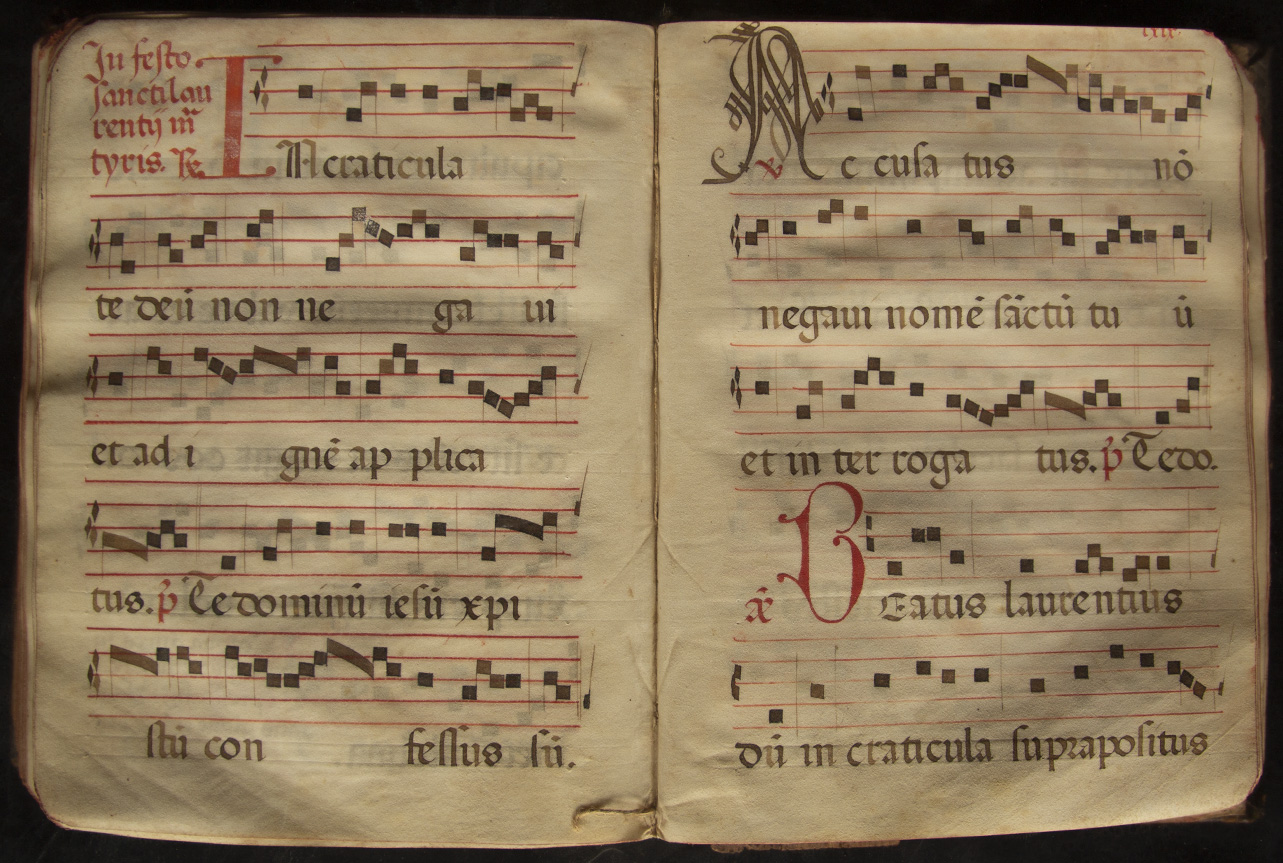 In festo
sancti lau
rentij m̃
tyris. R.
IN craticula
te deū non ne ga ui
et ad i gnē ap plica
tus. p̃ Te dominū iesū xpi
stū con fessus sū.
lxix.
℣ Ac cusa tus nō
negaui nomē sāctū tu ū
et in ter roga tus. p̃ Te do.
ã BEatus laurentius
dū in craticula suprapositus